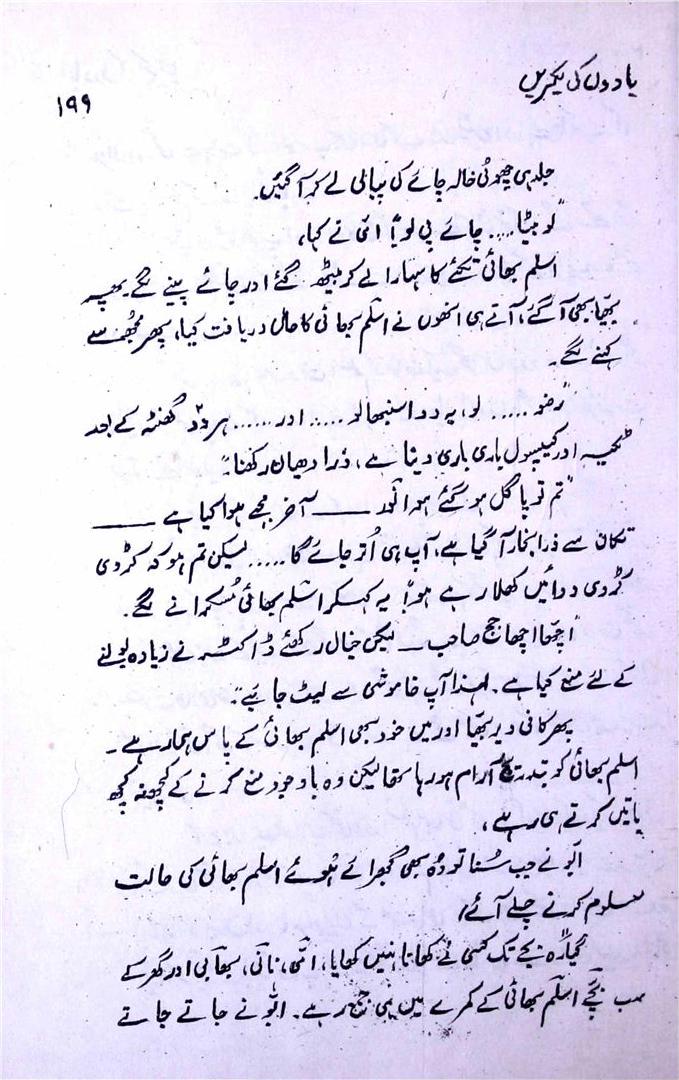 یادوں کی لکیریں
۱۹۹
جلد ہی چھوٹی خالہ چائے کی پیالی لے کر آ گئیں۔
"لو بیٹا.... چائے پی لو" امی نے کہا،
اسلم بھائی تکئے کا سہارا لے کر بیٹھ گئے اور چائے پینے لگے۔ پھر
بھیّا بھی آ گئے، آتے ہی انھوں نے اسلم بھائی کا حال دریافت کیا، پھر مجھ سے
کہنے لگے۔
"رضو ..... لو یہ دوا سنبھالو ..... اور ...... ہر دو گھنٹہ کے بعد
ٹکیہ اور کیپسول باری باری دینا ہے، ذرا دھیان رکھنا"۔
"تم تو پاگل ہو گئے ہو انور —— آخر مجھے ہوا کیا ہے ——
تکان سے ذرا بخار آ گیا ہے، آپ ہی اُتر جائے گا ..... لیکن تم ہو کہ کڑوی
کڑوی دوائیں کھلا رہے ہو" یہ کہہ کر اسلم بھائی مُسکرانے لگے۔
"اچھا اچھا جج صاحب — لیکن خیال رکھئے ڈاکٹر نے زیادہ بولنے
کے لئے منع کیا ہے۔ لہذا آپ خاموشی سے لیٹ جائیے"۔
پھر کافی دیر بھیّا اور میں خود بھی اسلم بھائی کے پاس ہی رہے۔
اسلم بھائی کو بتدریج آرام ہو رہا تھا لیکن وہ باوجود منع کرنے کے کچھ نہ کچھ
باتیں کرتے ہی رہے،
ابّو نے جب سُنا تو وُہ بھی گھبرائے ہُوئے اسلم بھائی کی حالت
معلوم کرنے چلے آئے،
گیارہ بجے تک کسی نے کھانا نہیں کھایا، امّی، نانی، بھابی اور گھر کے
سب بچّے اسلم بھائی کے کمرے میں ہی جمع رہے۔ ابّو نے جاتے جاتے